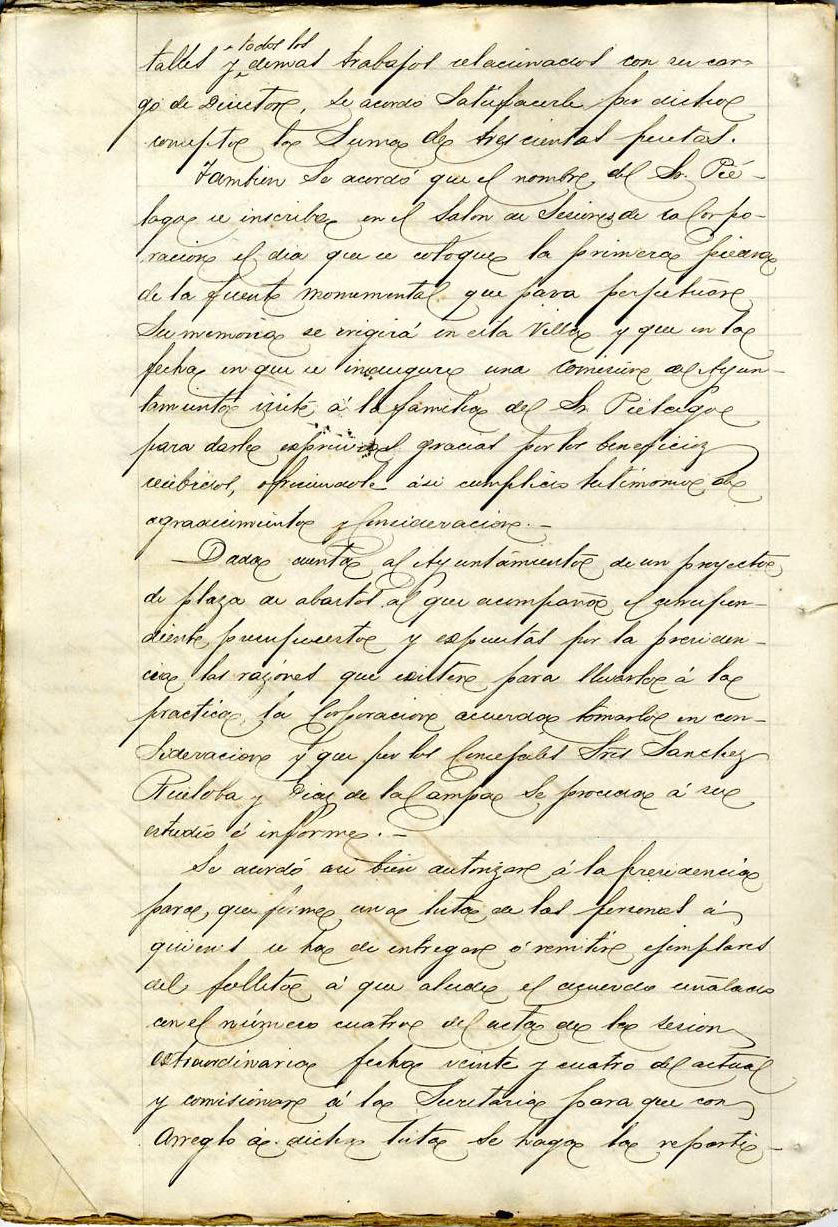 todos los
talles y demas trabajos relacionados con su car-
go de Director, se acordó Satisfacerle por dichos
conceptos la Suma de trescientas pesetas.
Tambien Se acordó que el nombre del Sr. Pié-
lago se inscriba en el Salon de Sesiones de la Corpo-
racion el dia que se coloque la primera piedra
de la fuente monumental que para perpetuar
Su memoria se erigirá en esta Villa y que en la
fecha en que se inaugure una Comision del Ayun-
tamiento visite á la familia del Sr. Piélago
para darle expresivas gracias por los beneficios
recibidos, ofreciendole asi cumplido testimonio de
agradecimiento y Consideracion.-
Dada cuenta al Ayuntamiento de un proyecto
de plaza de abastos, al que acompaña el correspon-
diente presupuesto y expuestas por la presiden-
cia las razones que existen para llevarlo á la
practica, la Corporacion acuerda tomarlo en con-
sideracion y que por los Concejales Sres Sanchez
Rueloba y Diaz de la Campa Se proceda á su
estudio é informe.-
Se acordó asi bien autorizar á la presidencia
para que forme una lista de las personas á
quienes se ha de entregar ó remitir ejemplares
del folleto á que alude el acuerdo señalado
con el número cuatro del acta de la sesion
extraordinaria fecha veinte y cuatro del actual
y comisionar á la Secretaria para que con
arreglo á dicha lista se haga la reparti-